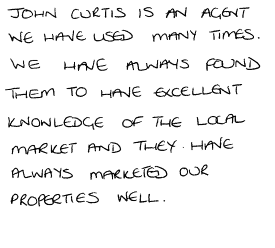 JOHN CURTIS IS AN AGENT
WE HAVE USED MANY TIMES.
WE HAVE ALWAYS FOUND
THEM TO HAVE EXCELLENT
KNOWLEDGE OF THE LOCAL
MARKET AND THEY. HAVE
ALWAYS MARKETED OUR
PROPERTIES WELL.